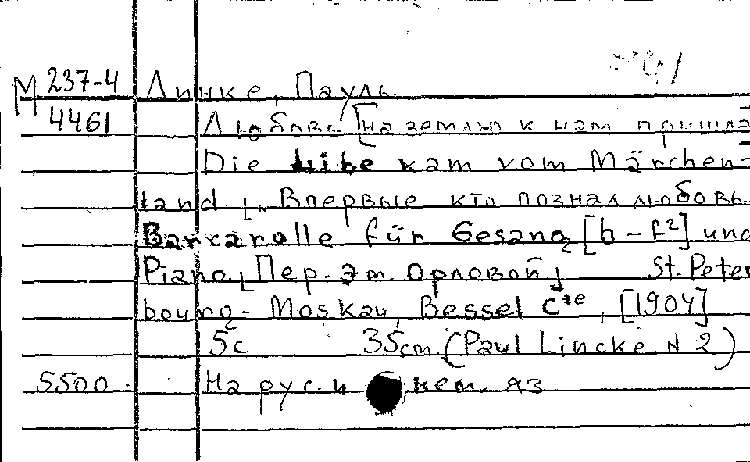 М 237-4 Линке, Пауль
4461 Любовь [на землю к нам пришла
Die Libe kam vom Märchen-
land]. Впервые кто познал любовь.
Barkarolle für Gesang [b-f²] und
Piano. [Пер. Эм. Орловой] St. Peters
bourg-Moskau, Bessel Cie, [1904]
5с 35cm. (Paul Lincke N 2)
5500. На рус. и нем. яз